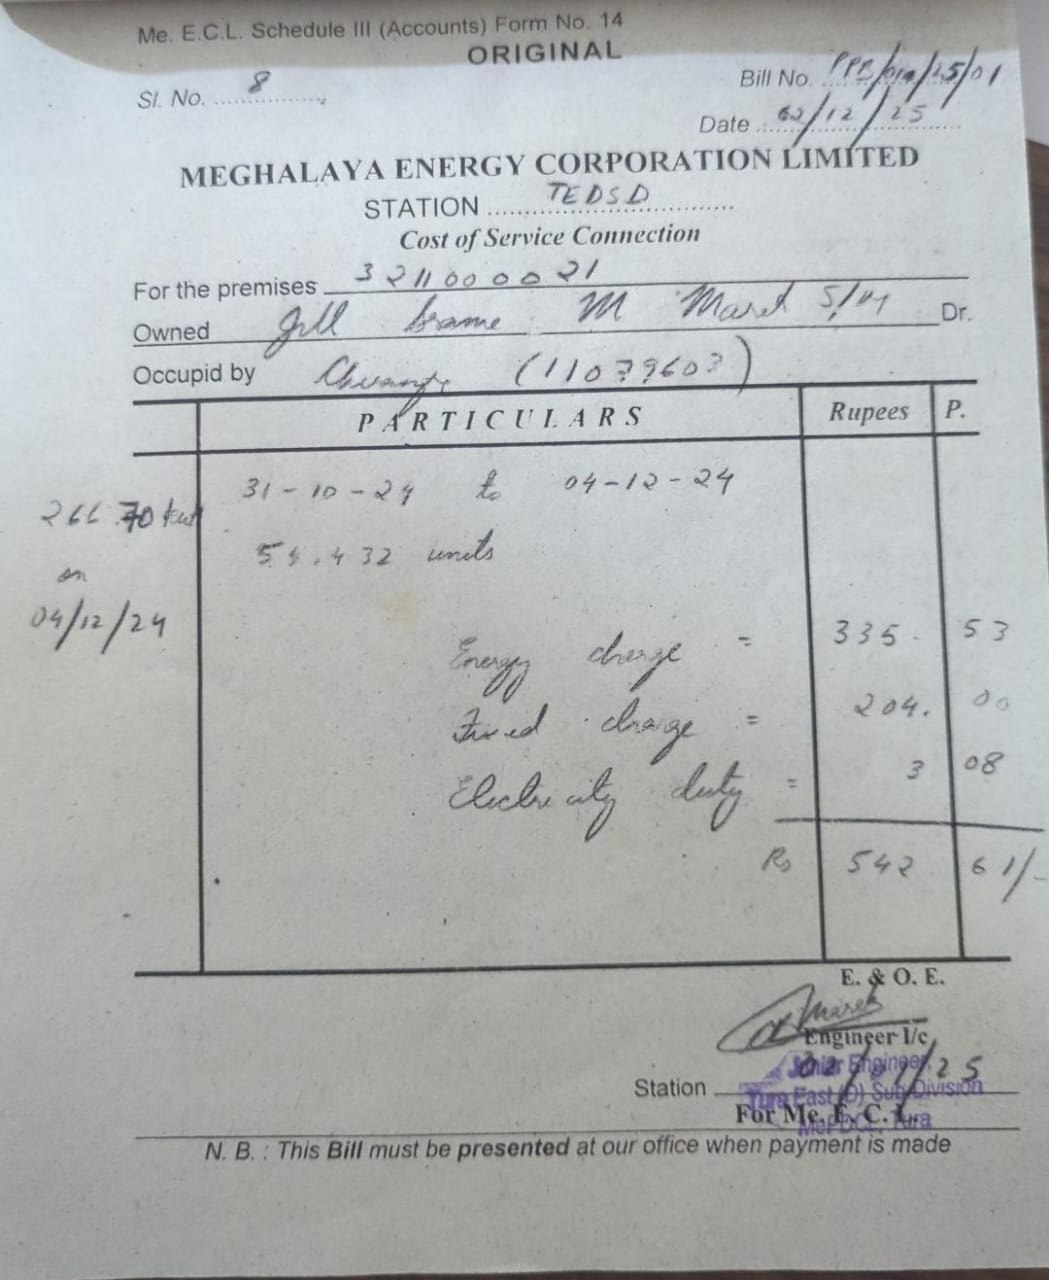 Me. E.C.L. Schedule III (Accounts) Form No. 14
ORIGINAL
Sl. No. 8
Bill No. PPB/ /25/01
Date 02/12/25
MEGHALAYA ENERGY CORPORATION LIMITED
STATION TEDSD
Cost of Service Connection
For the premises 3211000021
Owned Jill M Marak Dr.
Occupid by (11079603)
PARTICULARS Rupees P.
31-10-24 to 04-12-24
266.70 kwh
54.432 units
on
04/12/24
Energy charge = 335. 53
Fixed charge = 204. 00
Electricity duty = 3 08
Rs 542 61/-
E. & O. E.
Marak
Engineer I/c
Junior Engineer
Station /25
Tura East (D) Sub Division
For Me. E. C. L.
MePDCL, Tura
N. B. : This Bill must be presented at our office when payment is made